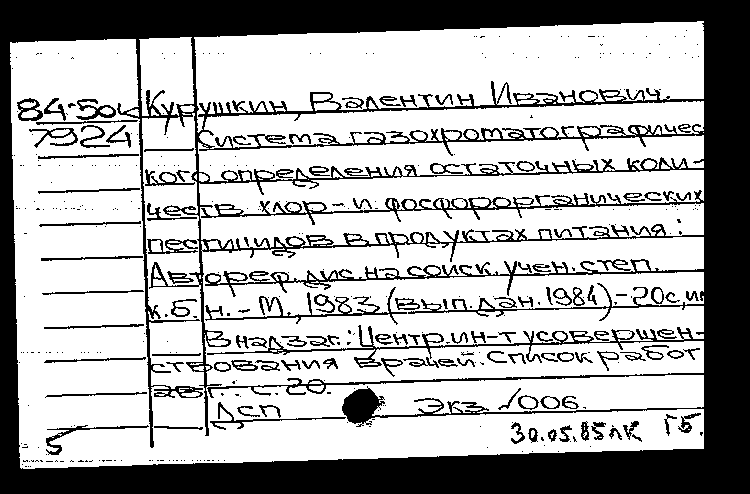 84-50к Курушкин, Валентин Иванович.
7924 Система газохроматографичес
кого определения остаточных коли-
честв хлор- и фосфорорганических
пестицидов в продуктах питания:
Автореф. дис. на соиск. учен. степ.
к.б.н. - М., 1983 (вып. дан. 1984). - 20с, ил
В надзаг.: Центр. ин-т усовершен-
ствования врачей. Список работ
авт.: с. 20.
ДСП Экз. √006.
30.05.85 ЛК ГБ.
5